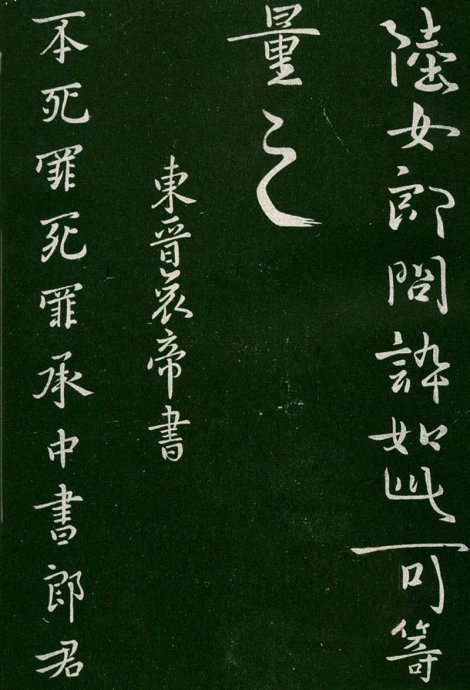 陸女郎問訴如此可等
量之
東晉哀帝書
丕死罪死罪承中書郎君